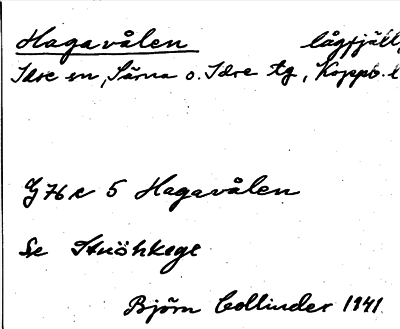 Hagavålen lågfjäll,
Idre sn, Särna o. Idre tg, Koppb. l
G 76 c 5 Hagavålen
Se Struöhkege
Björn Collinder 1941